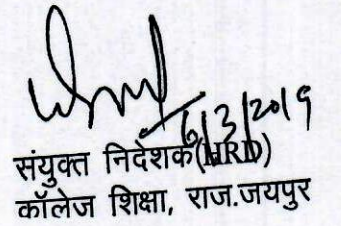 6/3/2019
संयुक्त निदेशक(HRD)
कॉलेज शिक्षा, राज.जयपुर